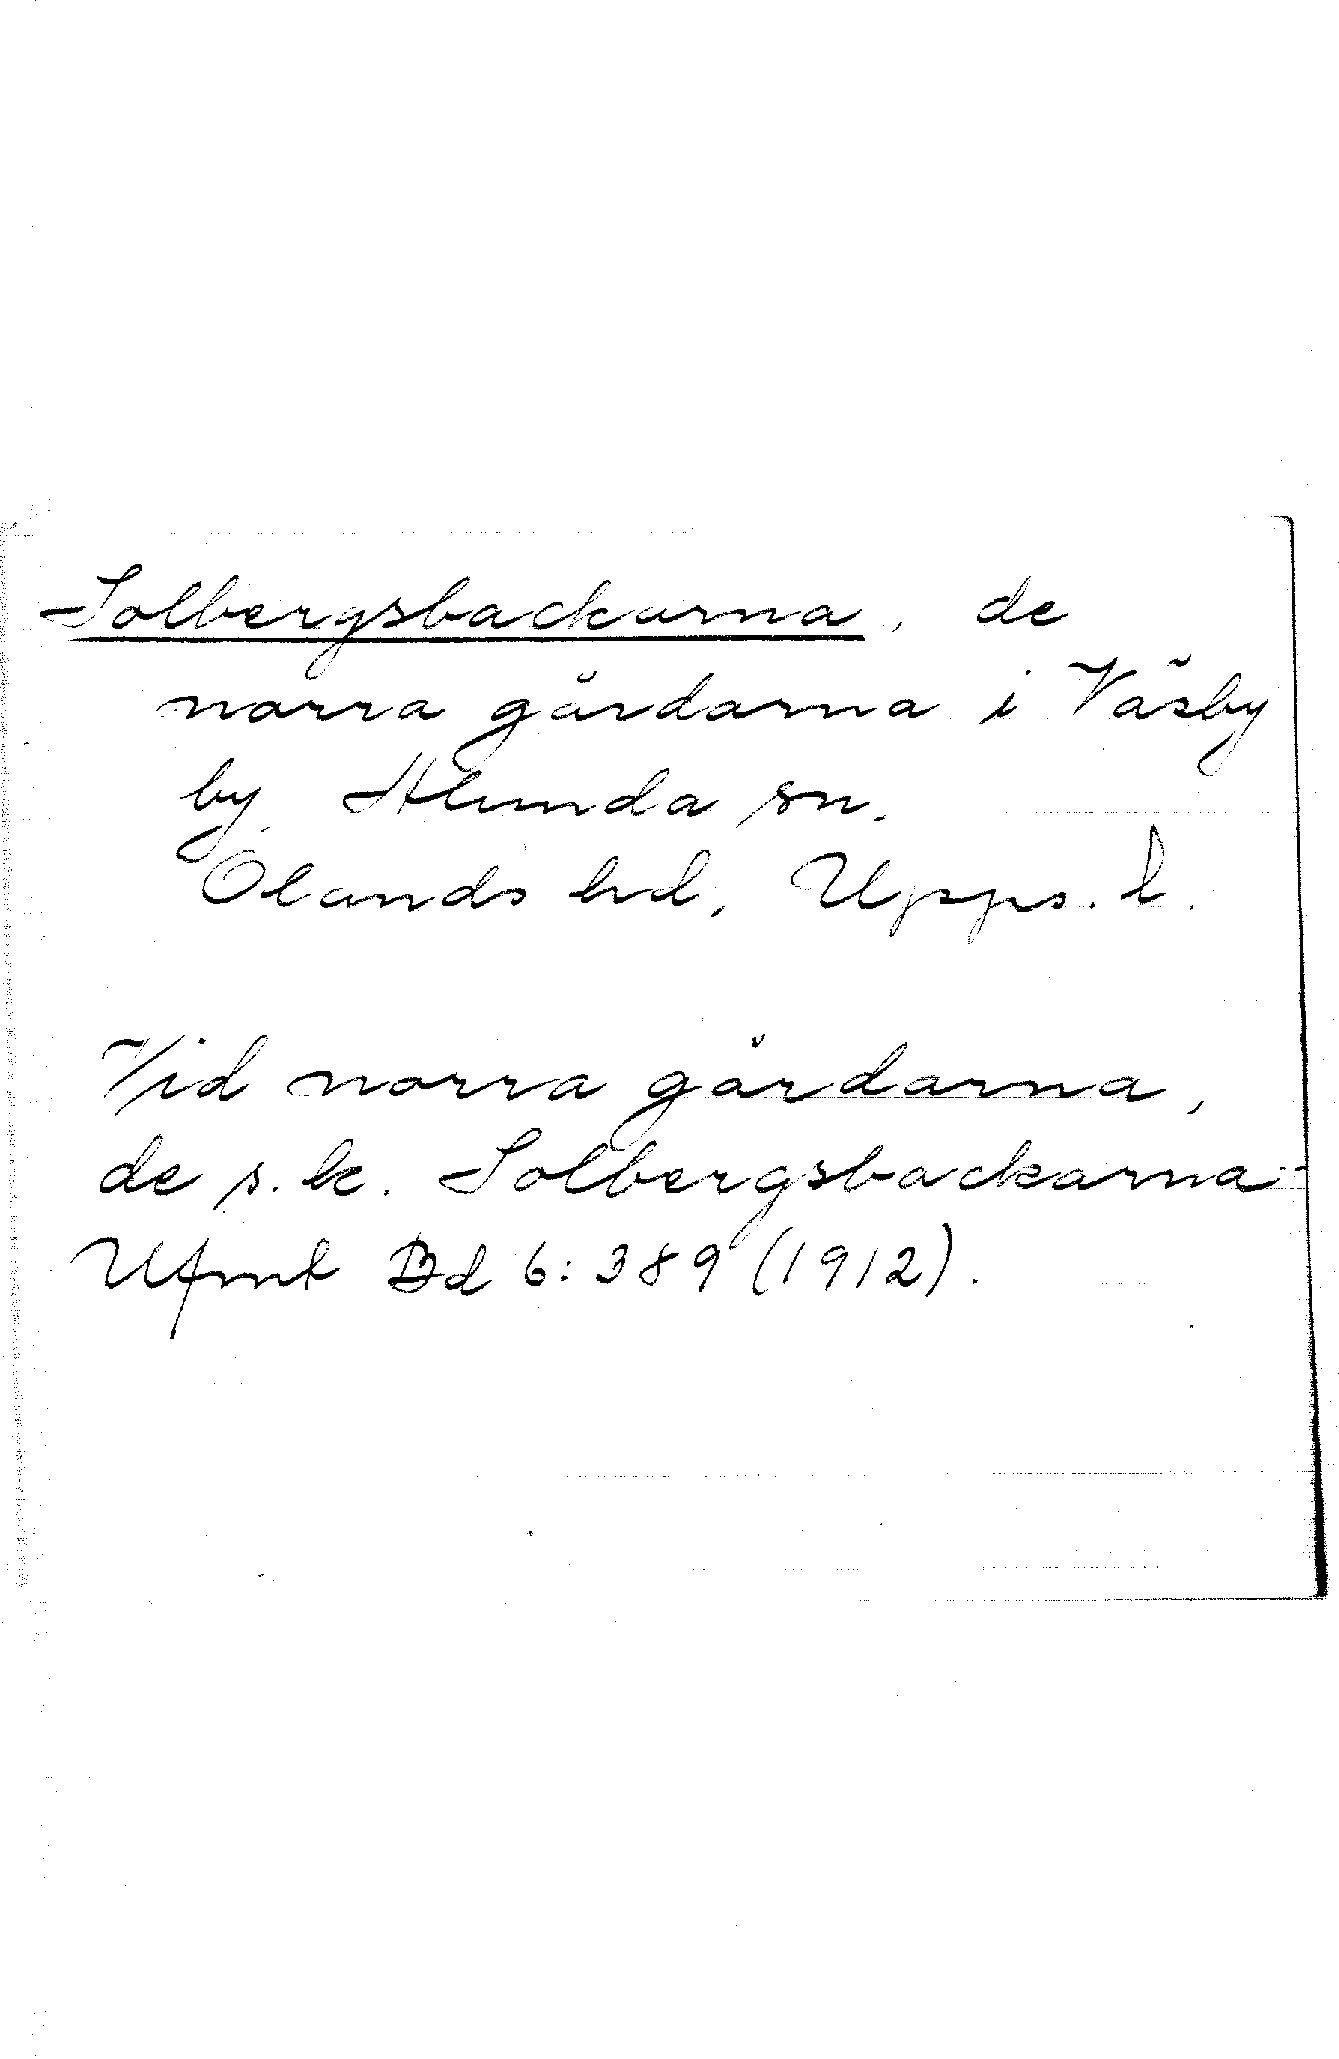 Solbergsbackarna, de
norra gårdarna i Väsby
by Alunda sn.
Olands hd, Upps. l.
Vid norra gårdarna,
de s.k. Solbergsbackarna
Ufmt Bd 6:389 (1912).